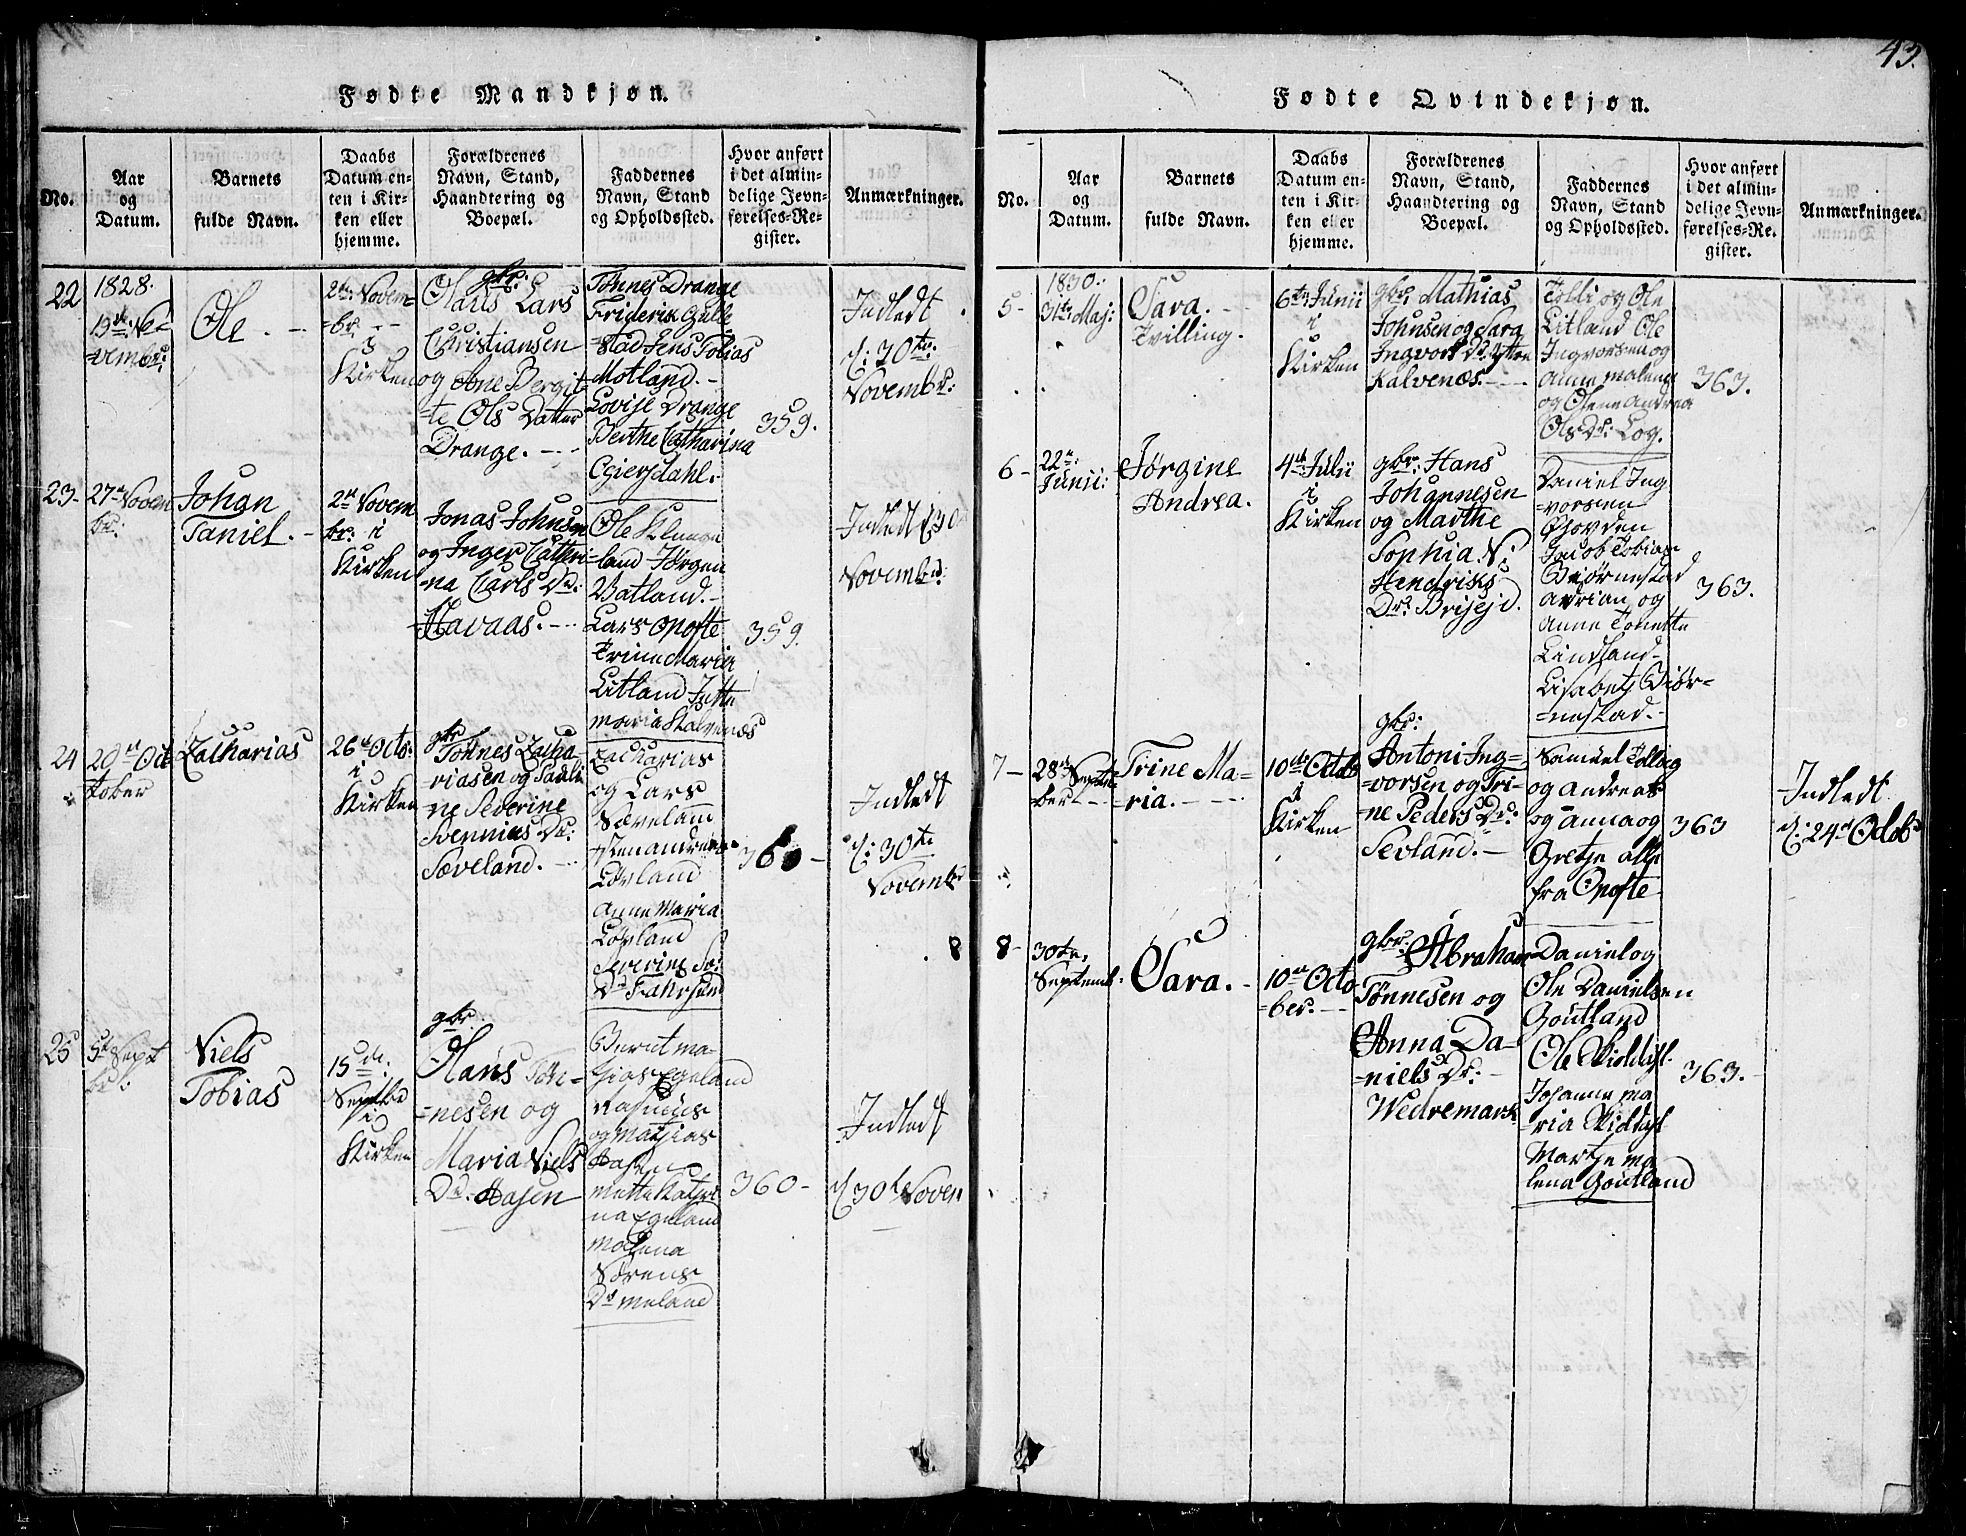 43.
Fødte Mandkjøn.
No.
Aar
og
Datum.
Barnets
fulde Navn.
Daabs
Datum en-
ten i Kir-
ken eller
hjemme.
Forældrenes
Navn, Stand,
Haandtering og
Boepæl.
Faddernes
Navn, Stand
og Opholdssted.
Hvor anført
i det almin-
delige Jevn-
førelses-Re-
gister.
Anmærkninger.
22
1828.
19de No-
vembr:
Ole.
2den Novem-
br.
i
Kirken
gbr:
Olaus Lars
Christiansen
og Ane Bergit-
te Ols Datter
Drange.
Tønnes Drange
Friderik Gulle-
stad Jens Tobias
Motland.
Lovise Drange
Berthe Catharina
Egiersdahl.
359.
Indledt
d: 30te
Novembr:
23-
27de Novem
br:
Johan
Taniel.
2den Novem
br: i
Kirken
Jonas Johnsen
og Inger Cathri-
na Carls Dr:
Havaas.
Ole Klunge-
land Jørgen
Vatland.
Lars Opofte
Trine Maria
Litland Jutte
maria Kalvenæs
359.
Indledt d 30
Novembr:
24
20de Oct
tober
Zacharias
26de Octo:
i
Kirken
gbr
Tønnes Zacha-
riasen og Pauli
ne Severine
Svennius Dr:
Sæveland.
Zacharias
og Lars
Sævelam
Løvland
Anne Maria
Løvland
Severine
360-
Indledt
d: 30te
Novembr
25
5te Sept
br:
Niels
Tobias
15de
Septbr
i
Kirken
gbr.
Hans Tøn-
nesen og
Maria Niels
Dr. Aasen
Berut ma-
Egeland
Rasmus
og Matjias
Aasen
mette Katri
na Egeland
Malena
Sørens
Dr meland
360-
Indledt
d 30te Noven
Fødte Qvindekjøn.
No.
Aar
og
Datum.
Barnets
fulde Navn.
Daabs
Datum en-
ten i Kir-
ken eller
hjemme.
Forældrenes
Navn, Stand,
Haandtering og
Boepæl.
Faddernes
Navn, Stand
og Opholdssted.
Hvor anført
i det almin-
delige Jevn-
førelses-Re-
gister.
Anmærkninger.
1830.
5-
31te Maj:
Sara.
Tvilling.
6te Junii
i
Kirken
gbr: Mathias
Johnsen og Sara
Ingvors Dr Yttre
Kalvenæs.
Tolli og Ole
Litland Ole
Ingvorsen og
Anne malene
og Olene Andrea
Ols Dr: Log.
363.
6-
22de
Junii:
Jørgine
Andrea.
4de Julii
i
Kirken
gbr: Hans
Johannesen
og Marthe
Sophia N:
Hendriks
Dr: Brisejd.
Daniel Ing
vorsen
Jacob Tobias
Biørnestad
Adrian og
Anne Tonette
Lindland
Lisabetj Biør-
nestad.
363.
7-
28de Septem
ber
Trine Ma-
ria.
10de Octob
i
Kirken
gbr:
Antoni Ing-
vorsen og Tri-
ne Peders Dr:
Sevland.
Samuel Tollag
og Andreas
og Anna og
Gretje alle
fra Opofte
363
Indledt
d: 24de Octob
8 8-
30te
Septemb.
Sara.
10de Octo
ber.
gbr: Abraham
Tønnesen og
Anna Da-
niels Dr:
Wedremark
Daniel og
Ole Danielsen
Goutland
Ole
Johanna ma
ria
Martje ma
lena Goutland
363.